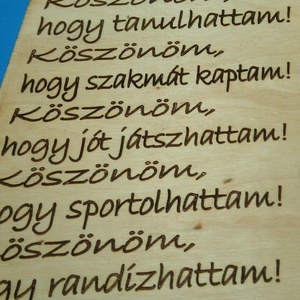 Köszönöm,
hogy tanulhattam!
Köszönöm,
hogy szakmát kaptam!
Köszönöm,
hogy jót játszhattam!
Köszönöm,
hogy sportolhattam!
Köszönöm,
hogy randízhattam!